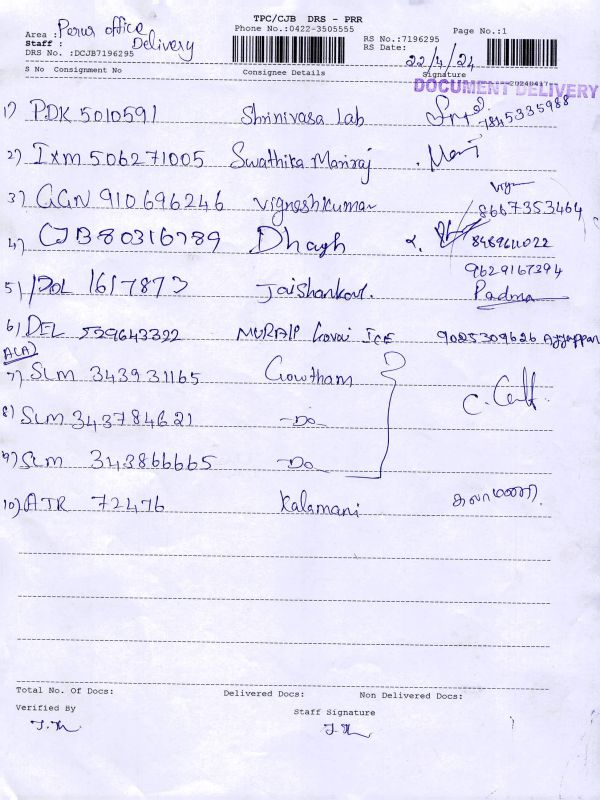 TPC/CJB DRS - PRR
Area : Perur office
Phone No.:0422-3505555
Page No.:1
Staff : Delivery
RS No.:7196295
DRS No. :DCJB7196295
RS Date: 22/4/24
S No Consignment No Consignee Details Signature
20240417
DOCUMENT DELIVERY
1) PDK 5010591 Shrinivasa Lab 7845335988
2) Ixm 506271005 Swathika Maniraj Mani
3) GGN 910696246 Vigneshkumar 8667353464
4) CJB 80316789 Dhagh 8489611022
9629167394
5) 1617873 Jaishankar. Padma
6) DEL 539643322 MURALP Covai ICE 9025309626 Ayyappan
7) SLM 343931165 Gowtham
8) SLM 343784621 -Do-
9) SLM 343866665 -Do-
10) ATR 72476 Kalamani கலாமணி.
Total No. Of Docs: Delivered Docs: Non Delivered Docs:
Verified By Staff Signature